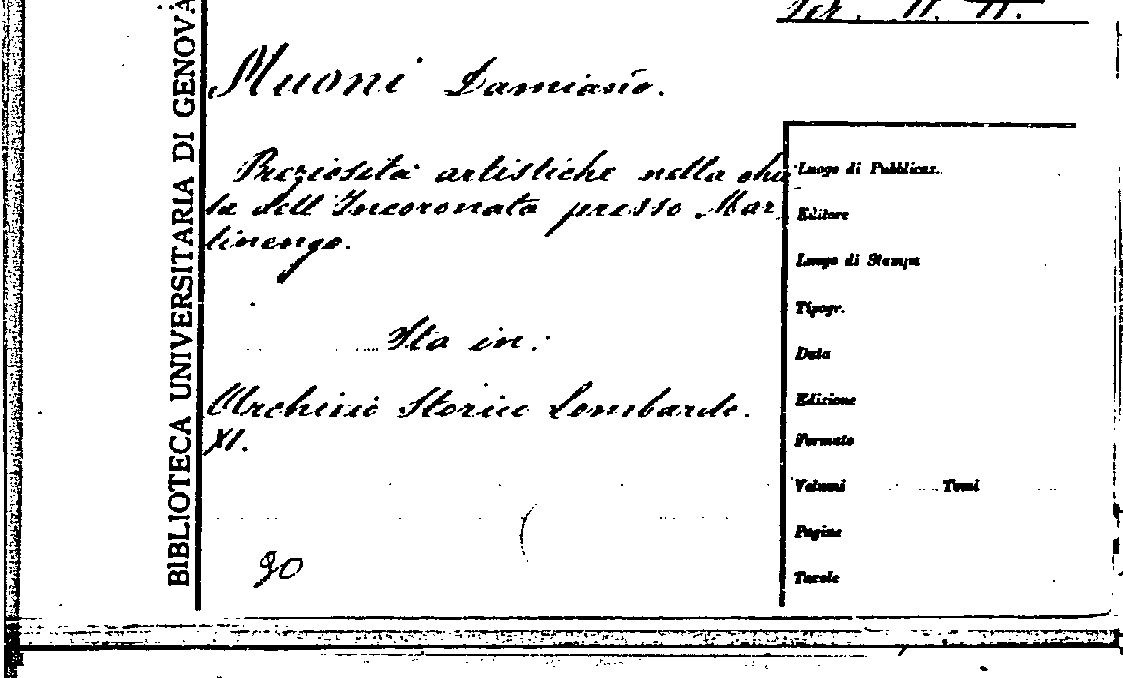 BIBLIOTECA UNIVERSITARIA DI GENOVA
Muoni Damiano.
Preziosità artistiche nella chie
sa dell'Incoronata presso Mar
tinengo.
Sta in:
Archivio Storico Lombardo.
XI.
90
Luogo di Pubblicaz.
Editore
Luogo di Stampa
Tipogr.
Data
Edizione
Formato
Volumi Tomi
Pagine
Tavole